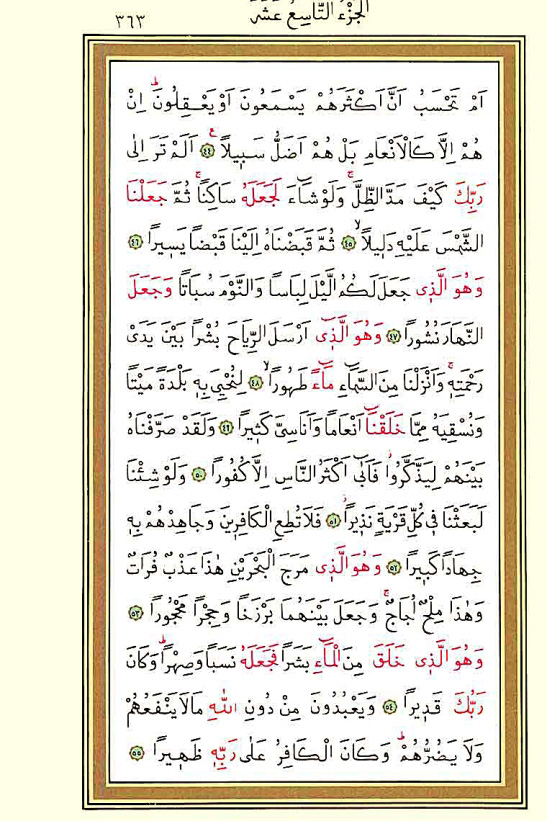 الجزء التاسع عشر
٣٦٣
اَمْ تَحْسَبُ اَنَّ اَكْثَرَهُمْ يَسْمَعُونَ اَوْ يَعْقِلُونَۜ اِنْ
هُمْ اِلَّا كَالْاَنْعَامِ بَلْ هُمْ اَضَلُّ سَبٖيلاًࣖ ﴿٤٤﴾ اَلَمْ تَرَ اِلٰى
رَبِّكَ كَيْفَ مَدَّ الظِّلَّۚ وَلَوْ شَٓاءَ لَجَعَلَهُ سَاكِناًۚ ثُمَّ جَعَلْنَا
الشَّمْسَ عَلَيْهِ دَلٖيلاًۙ ﴿٤٥﴾ ثُمَّ قَبَضْنَاهُ اِلَيْنَا قَبْضاً يَسٖيراً ﴿٤٦﴾
وَهُوَ الَّذٖى جَعَلَ لَكُمُ الَّيْلَ لِبَاساً وَالنَّوْمَ سُبَاتاً وَجَعَلَ
النَّهَارَ نُشُوراً ﴿٤٧﴾ وَهُوَ الَّذٖٓى اَرْسَلَ الرِّيَاحَ بُشْراً بَيْنَ يَدَىْ
رَحْمَتِهٖۚ وَاَنْزَلْنَا مِنَ السَّمَٓاءِ مَٓاءً طَهُوراًۙ ﴿٤٨﴾ لِنُحْيِىَ بِهٖ بَلْدَةً مَيْتاً
وَنُسْقِيَهُ مِمَّا خَلَقْنَٓا اَنْعَاماً وَاَنَاسِىَّ كَثٖيراً ﴿٤٩﴾ وَلَقَدْ صَرَّفْنَاهُ
بَيْنَهُمْ لِيَذَّكَّرُواۘ فَاَبٰٓى اَكْثَرُ النَّاسِ اِلَّا كُفُوراً ﴿٥٠﴾ وَلَوْ شِئْنَا
لَبَعَثْنَا فٖى كُلِّ قَرْيَةٍ نَذٖيراًۘ ﴿٥١﴾ فَلَا تُطِعِ الْكَافِرٖينَ وَجَاهِدْهُمْ بِهٖ
جِهَاداً كَبٖيراً ﴿٥٢﴾ وَهُوَ الَّذٖى مَرَجَ الْبَحْرَيْنِ هٰذَا عَذْبٌ فُرَاتٌ
وَهٰذَا مِلْحٌ اُجَاجٌۚ وَجَعَلَ بَيْنَهُمَا بَرْزَخاً وَحِجْراً مَحْجُوراً ﴿٥٣﴾
وَهُوَ الَّذٖى خَلَقَ مِنَ الْمَٓاءِ بَشَراً فَجَعَلَهُ نَسَباً وَصِهْراًۜ وَكَانَ
رَبُّكَ قَدٖيراً ﴿٥٤﴾ وَيَعْبُدُونَ مِنْ دُونِ اللّٰهِ مَا لَا يَنْفَعُهُمْ
وَلَا يَضُرُّهُمْۜ وَكَانَ الْكَافِرُ عَلٰى رَبِّهٖ ظَهٖيراً ﴿٥٥﴾